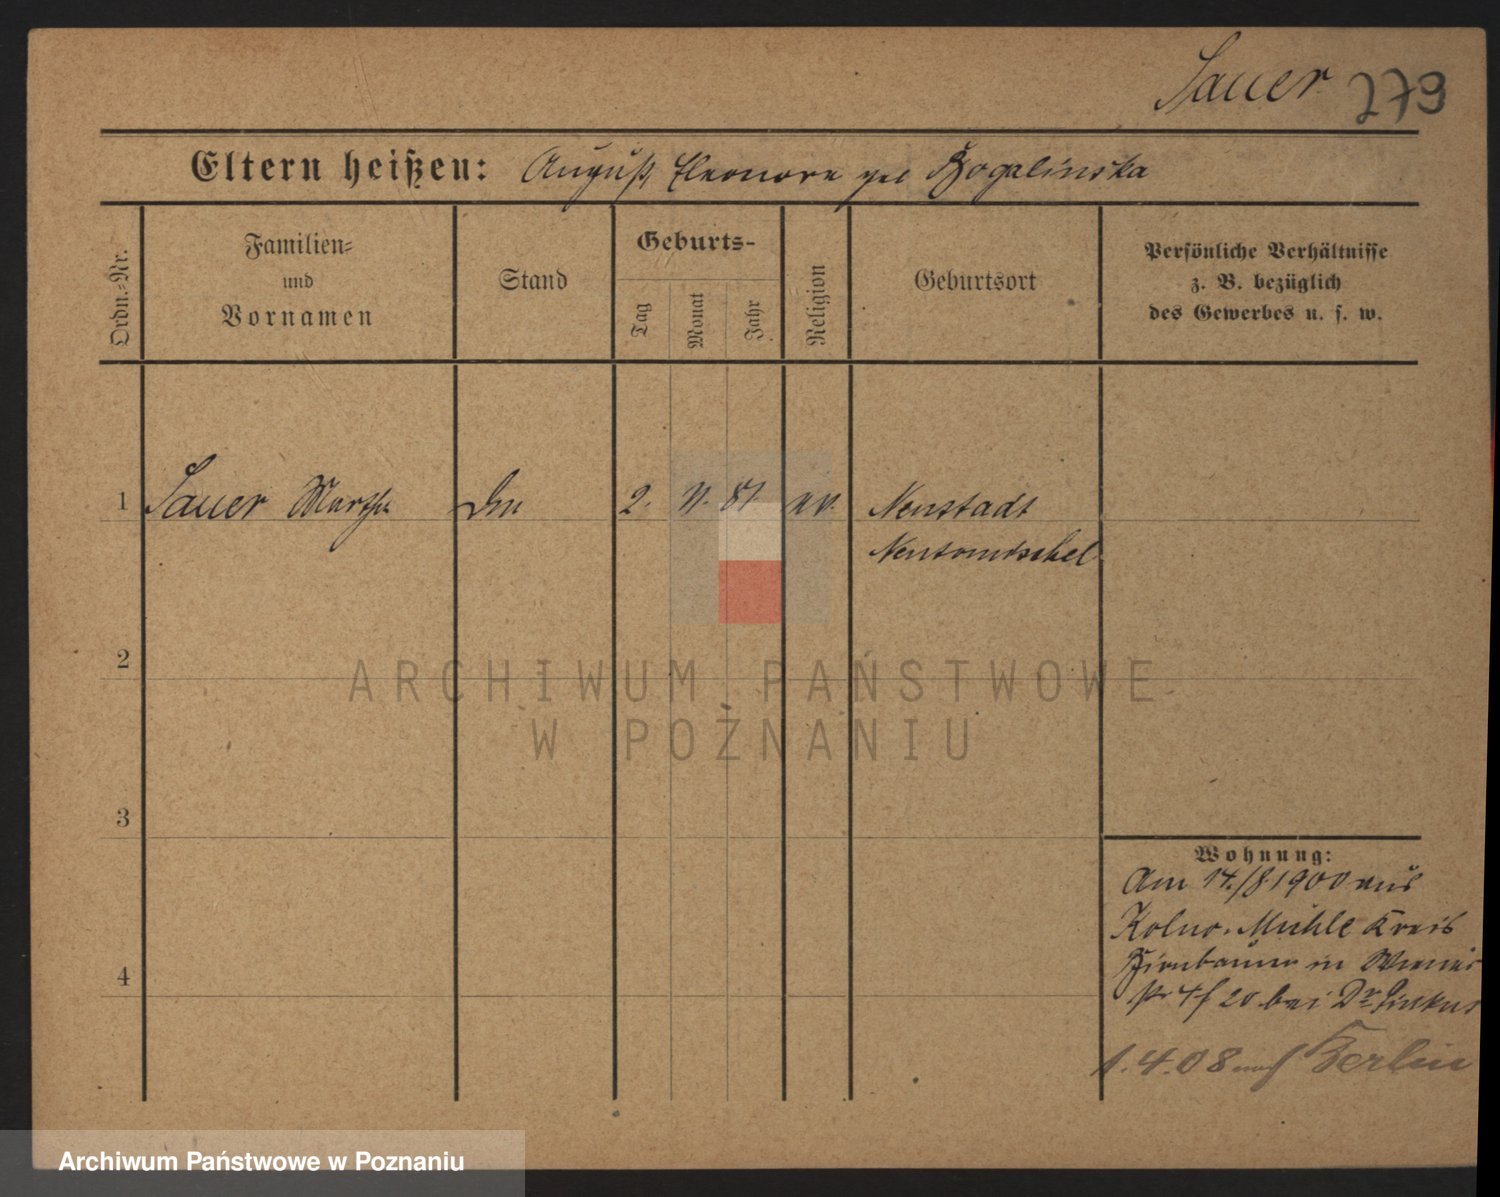 Sauer 279
Eltern heißen: August, Eleonore geb Bogalinska
Ordn.-Nr.
Familien-
und
Vornamen
Stand
Geburts-
Tag
Monat
Jahr
Religion
Geburtsort
Persönliche Verhältnisse
z. B. bezüglich
des Gewerbes u. s. w.
1 Sauer Martha 2. 11. 81. ev. Neustadt
Neutomischel
2
ARCHIWUM PAŃSTWOWE
W POZNANIU
3
Wohnung:
Am 14./8 1900 aus
Kolno. Mühle Kreis
4 Birnbaum in
20 bei Dr Pinkus
1.4.08 nach Berlin
Archiwum Państwowe w Poznaniu